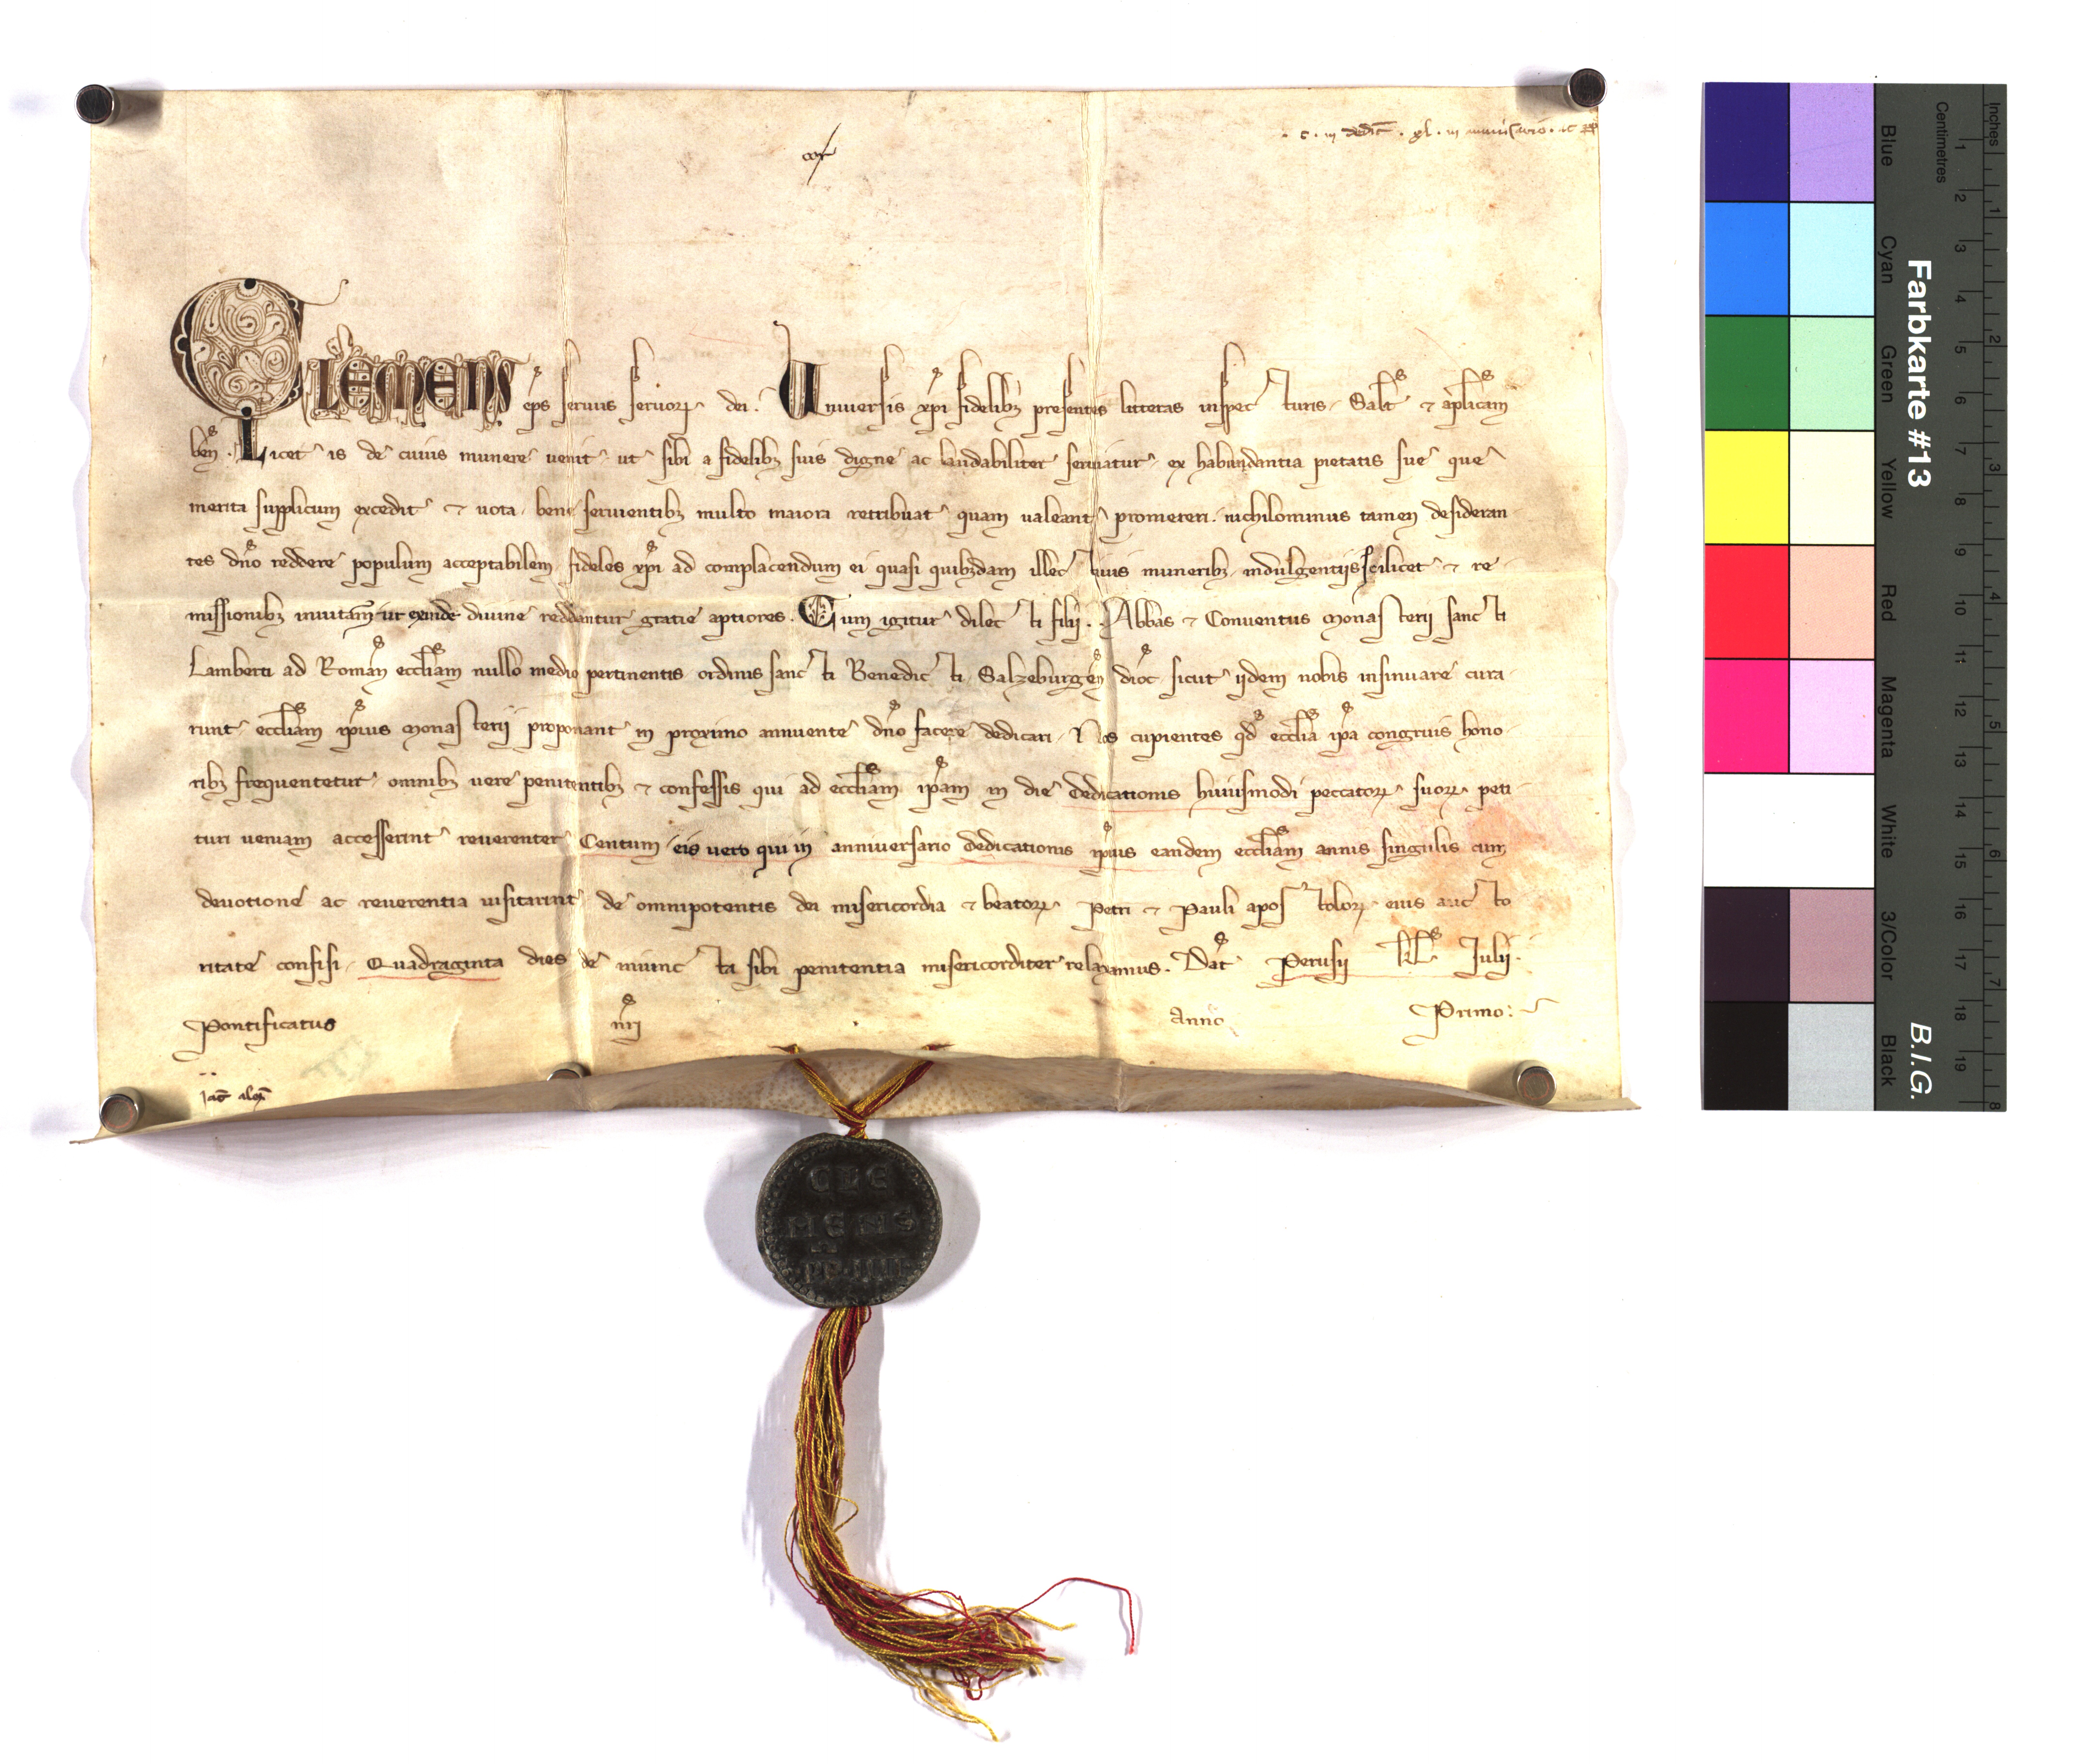 . c . in dedic̄ . xl . in anniu͛sario . ac
Clemens ep̄s seruus seruoꝝ dei. Uniuersis xp̄i fidelibꝫ presentes litteras inspecturis. Salt̄ ⁊ ap̄licam
ben̄. Licet is de cuius munere uenit ut sibi a fidelibꝫ suis digne ac laudabiliter seruiatur, ex habundantia pietatis sue que
merita supplicum excedit ⁊ uota, bene seruientibꝫ multo maiora retribuat quam ualeant promereri. nichilominus tamen desideran
tes dn̄o reddere populum acceptabilem fideles xp̄i ad complacendum ei quasi quibꝫdam illectiuis muneribꝫ indulgentiis scilicet ⁊ re
missionibꝫ inuitam̄ ut exinde diuine reddantur gratie aptiores. Cum igitur dilecti filii . . Abbas ⁊ Conuentus Monasterii sancti
Lamberti ad Roman̄ eccl̄iam nullo medio pertinentis ordinis sancti Benedicti, Salzeburgen̄ dioc̄ sicut ijdem nobis insinuare cura
runt eccl̄iam ip̄ius Monasterij proponant in proximo annuente dn̄o facere dedicari. Nos cupientes qd̄ eccl̄ia ip̄a congruis hono
ribꝫ frequentetur omnibꝫ uere penitentibꝫ ⁊ confessis qui ad eccl̄iam ip̄am in die dedicationis huiusmodi peccatoꝝ suoꝝ peti
turi ueniam accesserint reuerenter Centum eis vero qui in anniuersario dedicationis ip̄ius eandem eccl̄iam annis singulis cum
deuotione ac reuerentia uisitarint de omnipotentis dei misericordia ⁊ beatoꝝ Petri ⁊ Pauli apostoloꝝ eius aucto
ritate confisi, Quadraginta dies de iniuncta sibi penitentia misericorditer relaxamus. Dat̄ Perusij kl̄ Julij.
Pontificatus nr̄i Anno Primo.
Jac̄ alex̄
CLE
MENS
PP·IIII
Farbkarte #13
B.I.G.
Blue Cyan Green Yellow Red Magenta White 3/Color Black
Centimetres
1 2 3 4 5 6 7 8 9 10 11 12 13 14 15 16 17 18 19
Inches
1 2 3 4 5 6 7 8